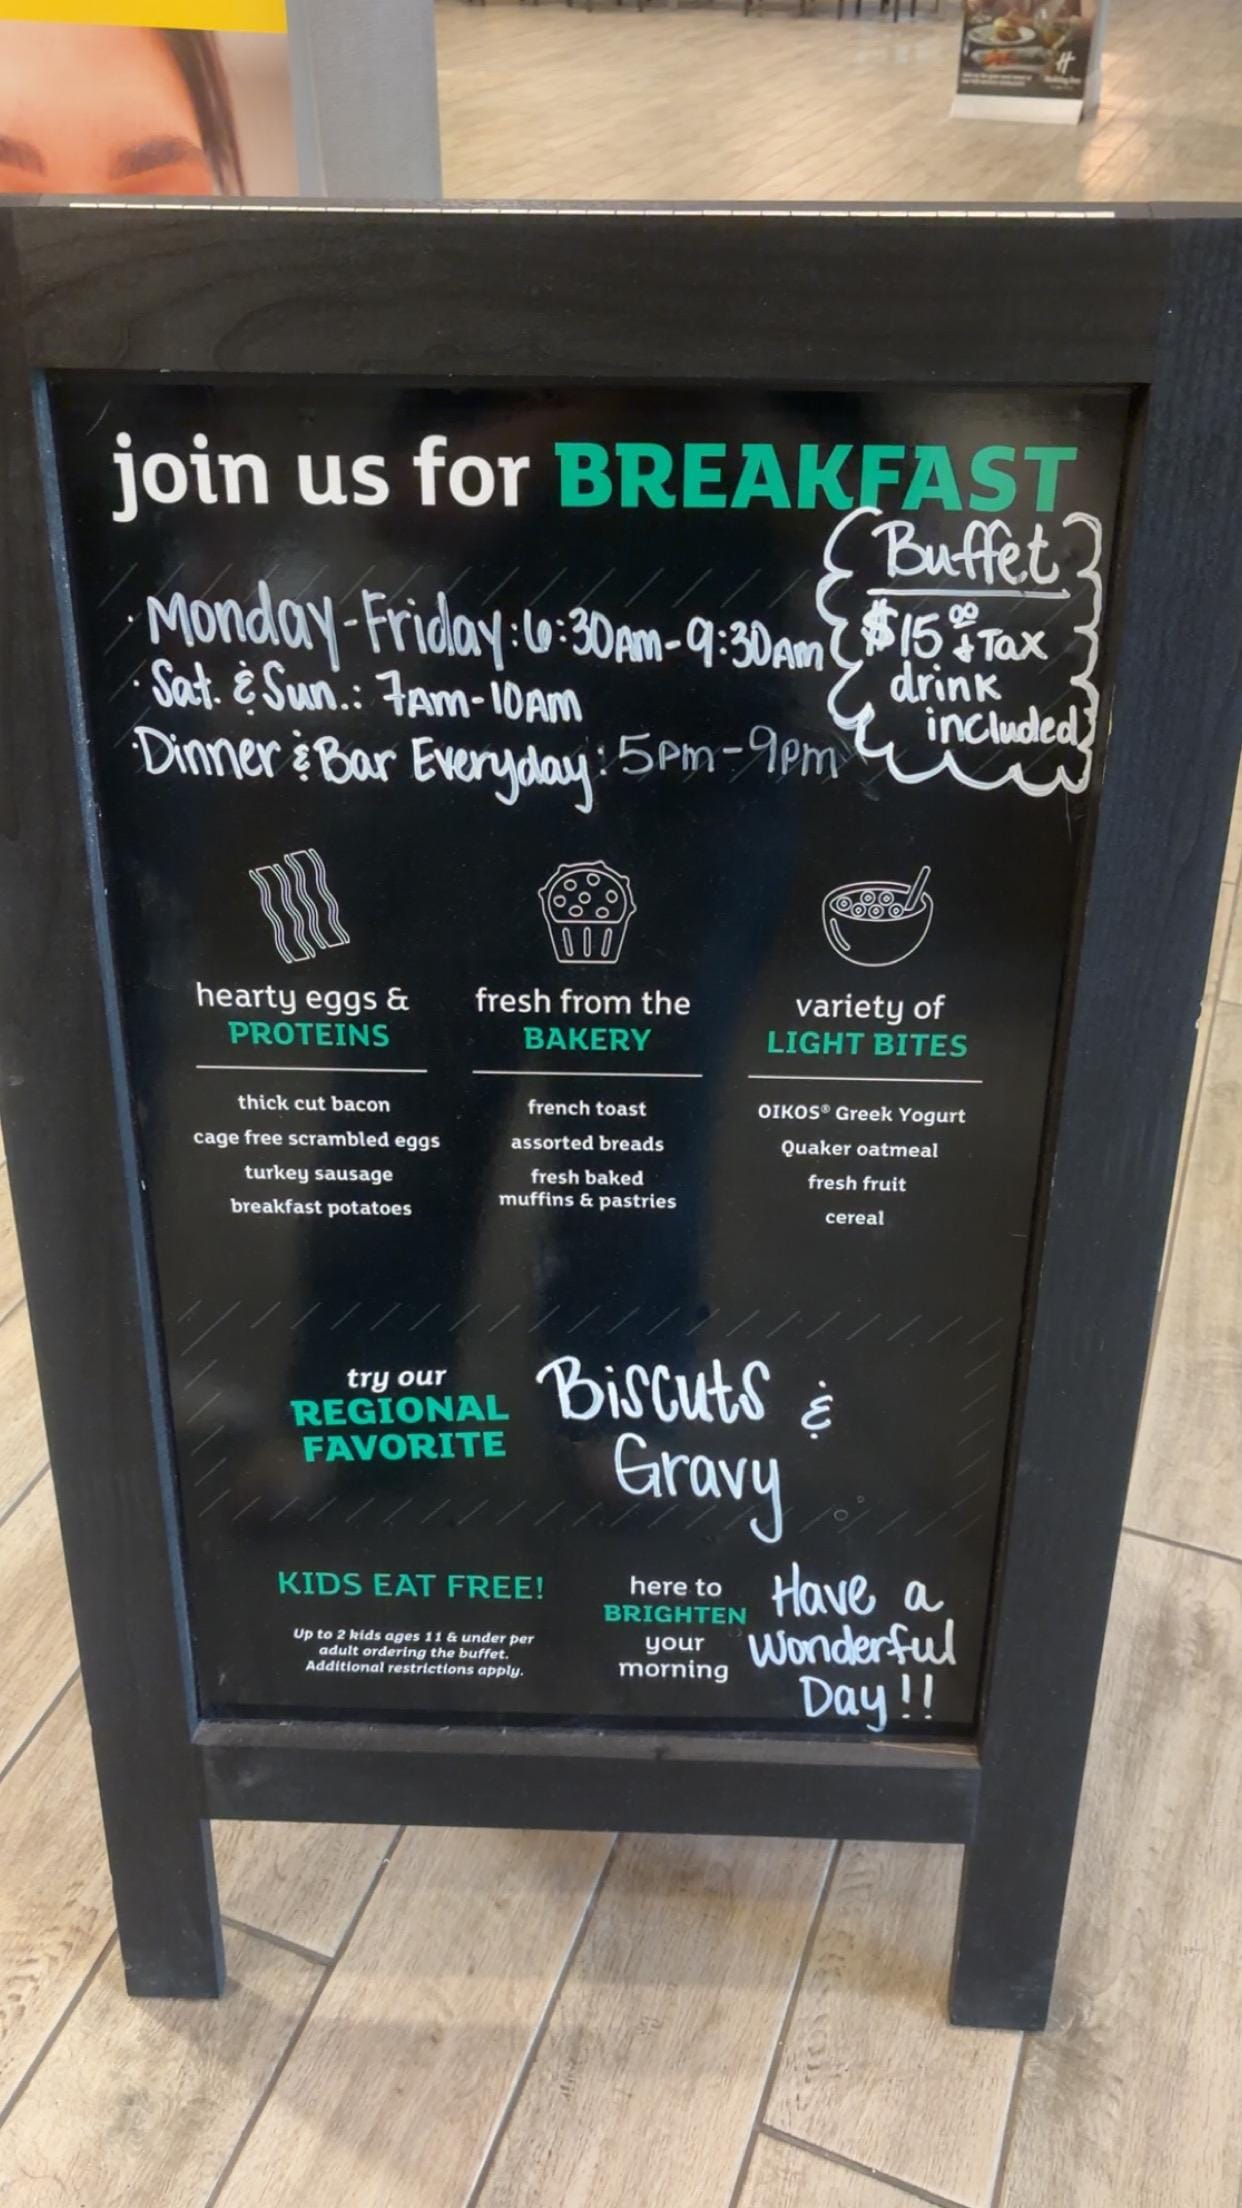 join us for BREAKFAST
Buffet
$15.00 + Tax
drink
included
· Monday-Friday: 6:30AM-9:30AM
· Sat. & Sun.: 7AM-10AM
· Dinner & Bar Everyday: 5pm-9pm
hearty eggs &
PROTEINS
thick cut bacon
cage free scrambled eggs
turkey sausage
breakfast potatoes
fresh from the
BAKERY
french toast
assorted breads
fresh baked
muffins & pastries
variety of
LIGHT BITES
OIKOS® Greek Yogurt
Quaker oatmeal
fresh fruit
cereal
try our
REGIONAL
FAVORITE
Biscuts &
Gravy
KIDS EAT FREE!
Up to 2 kids ages 11 & under per
adult ordering the buffet.
Additional restrictions apply.
here to
BRIGHTEN
your
morning
Have a
Wonderful
Day!!